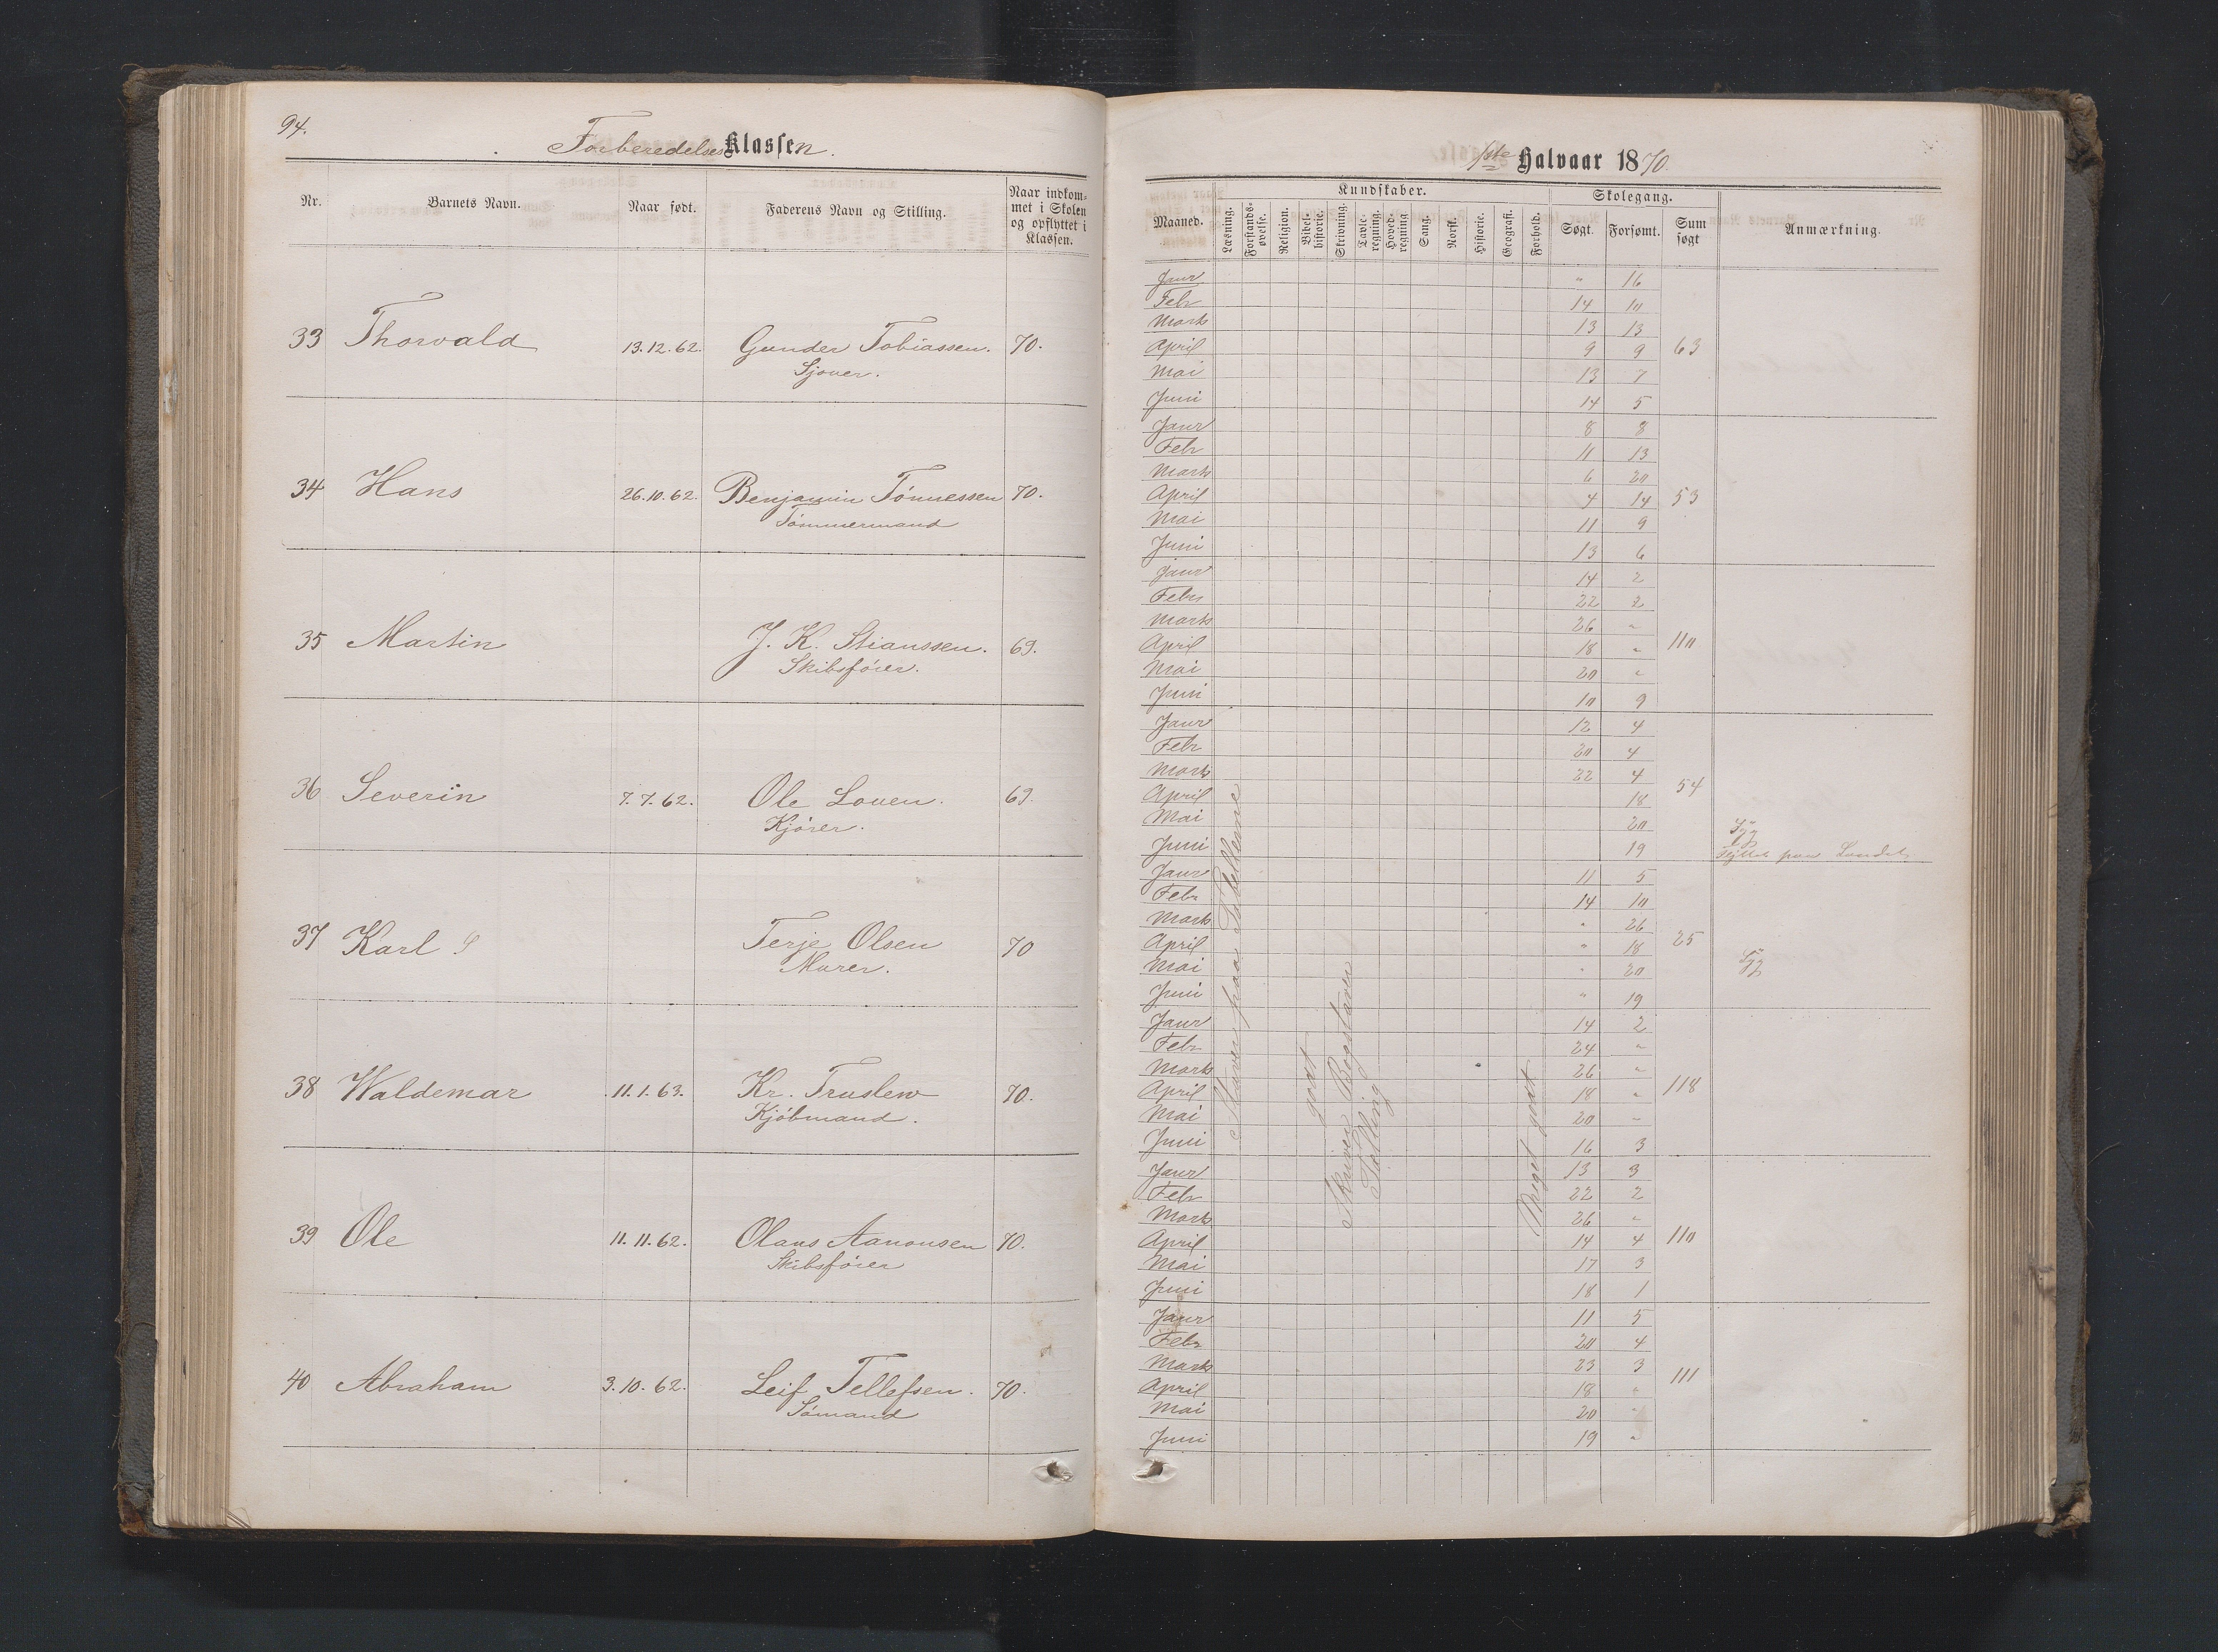 94.
Forberedelses Klassen.
Nr.
Barnets Navn.
Naar født.
Faderens Navn og Stilling.
Naar indkom-
met i Skolen
og opflyttet i
Klassen.
33 Thorvald 13.12.62. Gunder Tobiassen. 70.
Sjouer.
34 Hans 26.10.62. Benjamin Tönnessen 70.
Tömmermand
35 Martin J. K. Stianssen. 69.
Skibsförer.
36 Severin 7.7.62. Ole Louen. 69.
Kjörer.
37 Karl Terje Olsen 70
Murer.
38 Waldemar 11.1.63. Kr. Truslew 70.
Kjöbmand.
39 Ole 11.11.62. Olaus Aanonsen 70.
Skibsförer
40 Abraham 3.10.62. Leif Tellefsen. 70.
Sömand
1ste Halvaar 1870.
Maaned.
Kundskaber.
Læsning.
Forstands-
øvelse.
Religion.
Bibel-
historie.
Skrivning.
Tavle-
regning.
Hoved-
regning
Sang.
Norsk.
Historie.
Geografi.
Forhold.
Skolegang.
Søgt.
Forsømt.
Sum
søgt
Anmærkning.
Janr " 16
Febr 14 10
Marts 13 13
April 9 9 63
Mai 13 7
Juni 14 5
Janr 8 8
Febr 11 13
Marts 6 20
April 4 14 53
Mai 11 9
Juni 13 6
Janr 14 2
Febr 22 2
Marts 26 "
April 18 " 110
Mai 20 "
Juni 10 9
Janr 12 4
Febr 20 4
Marts 22 4
April 18 54
Mai 20 Syg
Juni 19 Flyttet paa Landet
Janr 11 5
Febr 14 10
Marts " 26
April " 18 25
Mai " 20 Syg
Juni " 19
Janr 14 2
Febr 24 "
Marts 26 "
April 18 " 118
Mai 20 "
Juni 16 3
Janr 13 3
Febr 22 2
Marts 26 "
April 14 4 110
Mai 17 3
Juni 18 1
Janr 11 5
Febr 20 4
Marts 23 3
April 18 " 111
Mai 20 "
Juni 19 "
Staver paa Tabellerne
godt
Skriver Bogstaver
Tælling
Meget godt